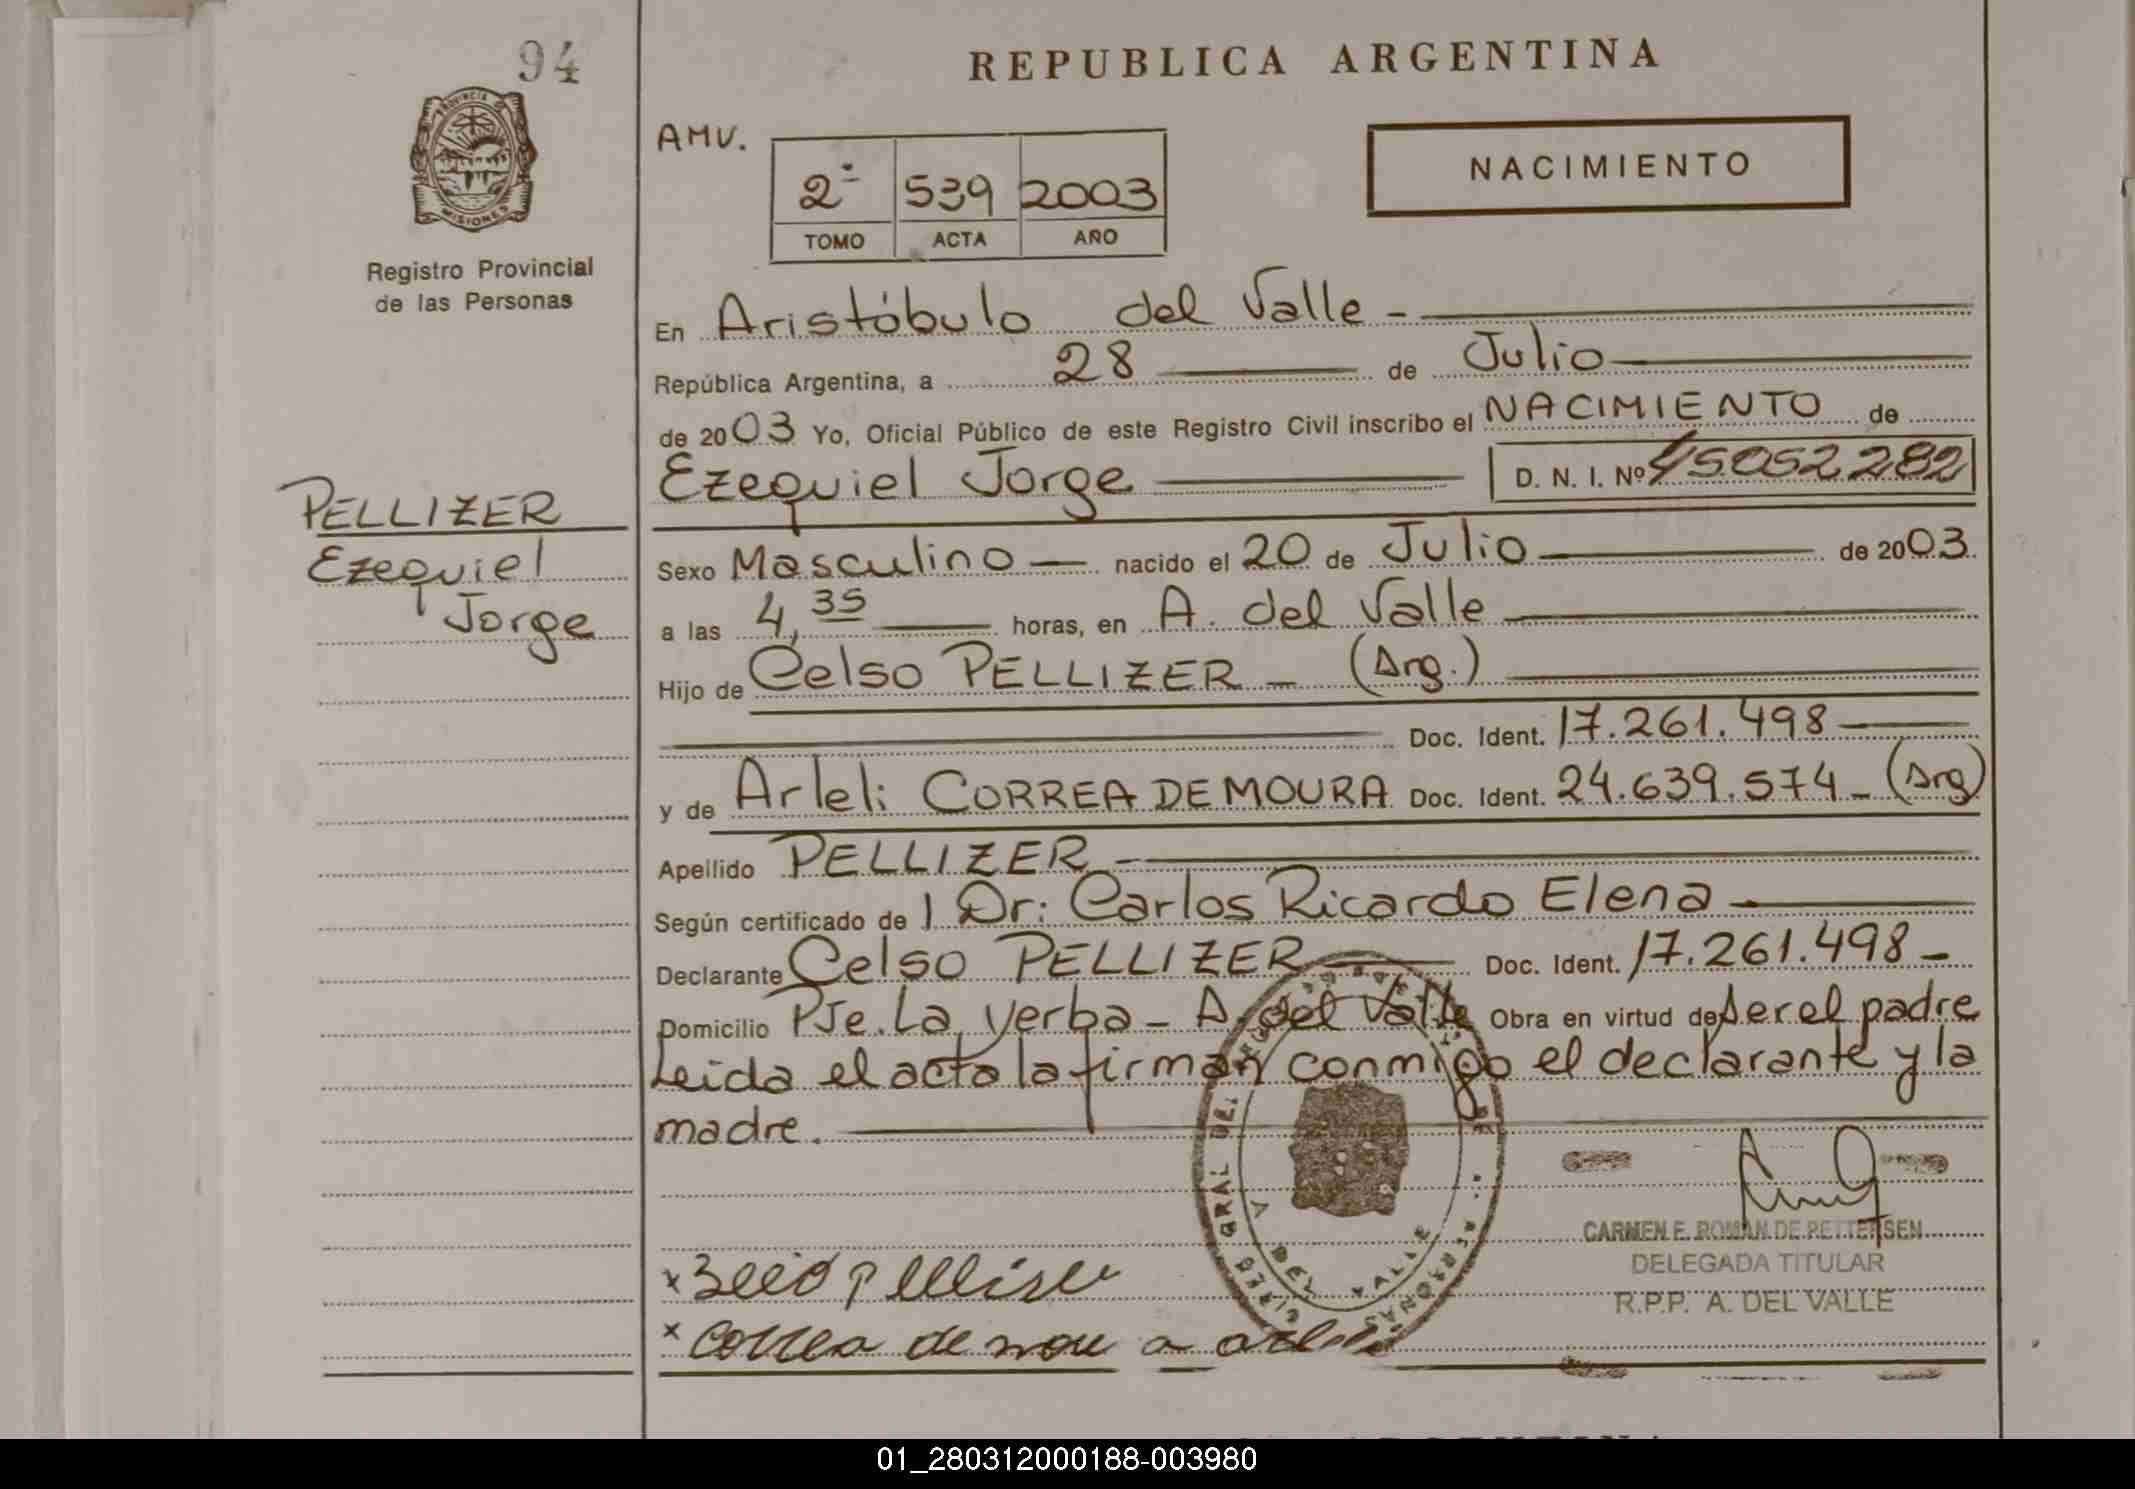 94
REPUBLICA ARGENTINA
PROVINCIA DE
MISIONES
Registro Provincial
de las Personas
AMV.
2º 539 2003
TOMO ACTA AÑO
NACIMIENTO
En Aristóbulo del Valle -
República Argentina, a 28 de Julio
de 2003 Yo, Oficial Público de este Registro Civil inscribo el NACIMIENTO de
Ezequiel Jorge D. N. I. Nº 45052282
PELLIZER
Ezequiel
Jorge
Sexo Masculino nacido el 20 de Julio de 2003.
a las 4,35 horas, en A. del Valle
Hijo de Celso PELLIZER - (Arg.)
Doc. Ident. 17.261.498
y de Arleli CORREA DE MOURA Doc. Ident. 24.639.574 - (Arg)
Apellido PELLIZER -
Según certificado de l Dr: Carlos Ricardo Elena
Declarante Celso PELLIZER Doc. Ident. 17.261.498 -
Domicilio Pje. La Yerba - A. del Valle Obra en virtud de ser el padre
Leida el acta la firman conmigo el declarante y la
madre.
A DEL VALLE
CARMEN E. ROMAN DE PETTERSEN
DELEGADA TITULAR
R.P.P. A. DEL VALLE
x
x Correa de mou a
01_280312000188-003980